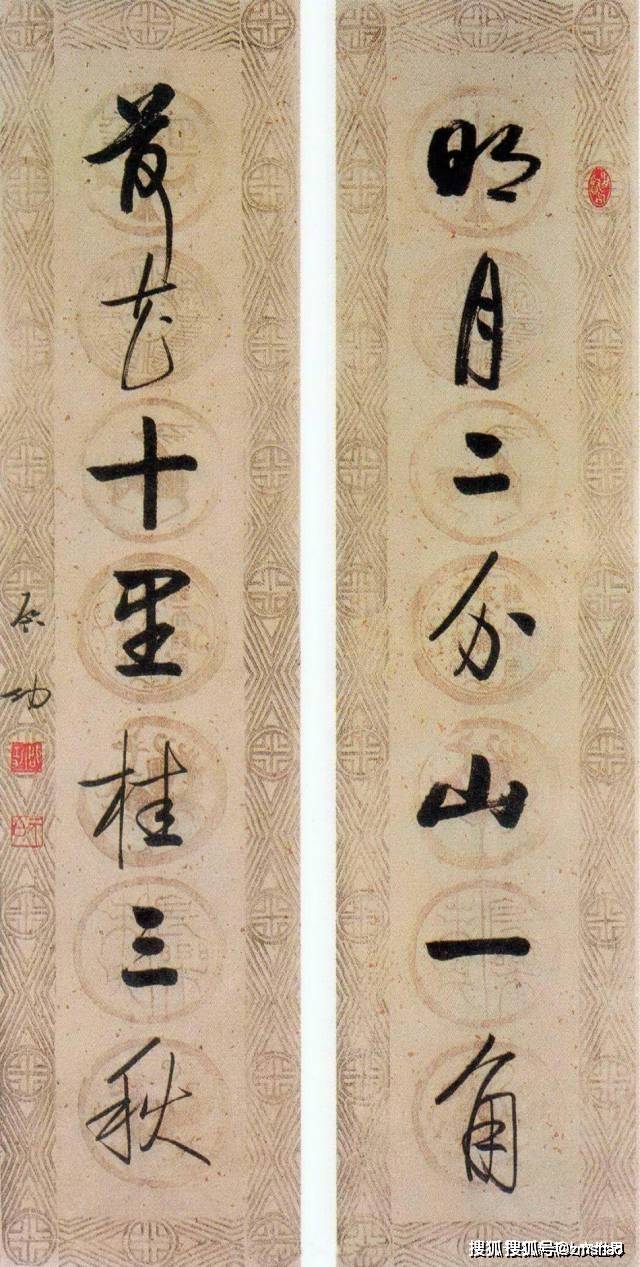 明月二分山一角
荷花十里桂三秋
启功
搜狐
搜狐号@